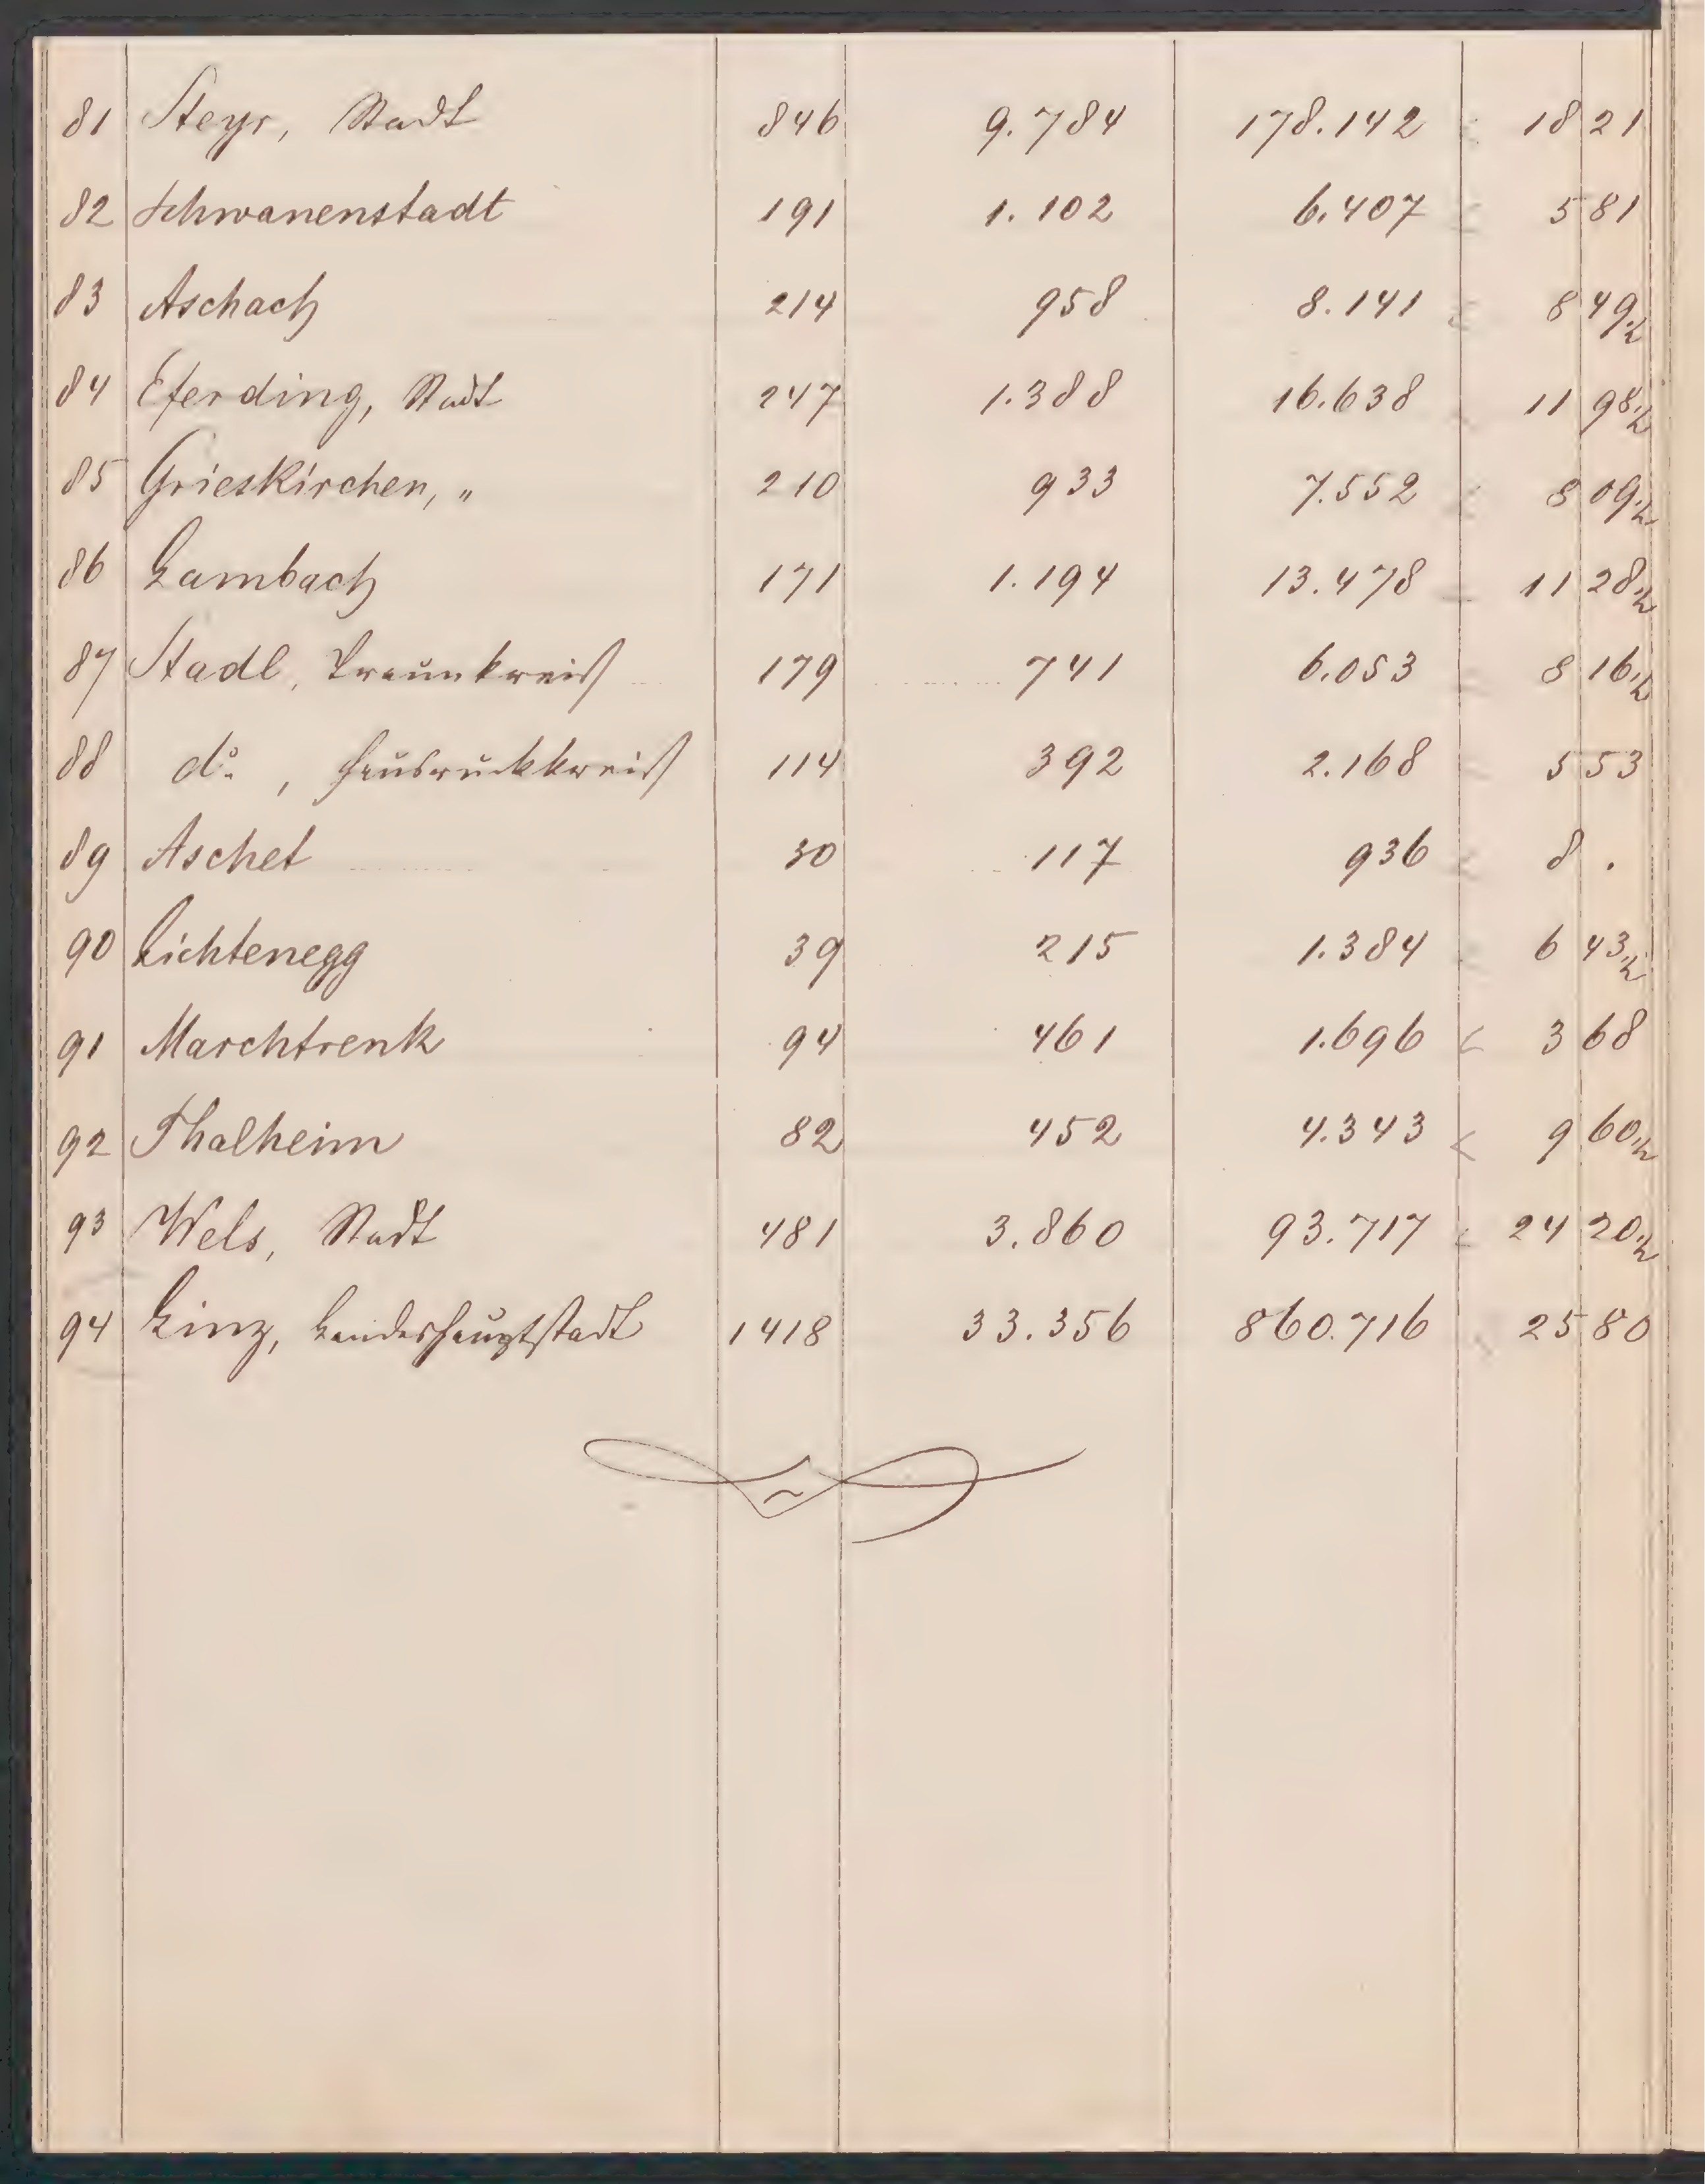 81 Steyr, Stadt 846 9.784 178.142 18 21
82 Schwanenstadt 191 1.102 6.407 5 81
83 Aschach 214 958 8.141 8 49½
84 Eferding, Stadt 247 1.388 16.638 11 98½
85 Grieskirchen, " 210 933 7.552 8 09½
86 Lambach 171 1.194 13.478 11 28½
87 Stadl, Traunkreis 179 741 6.053 8 16½
88 do. , Hausruckkreis 114 392 2.168 5 53
89 Aschet 30 117 936 8 .
90 Lichtenegg 39 215 1.384 6 43½
91 Marchtrenk 94 461 1.696 3 68
92 Thalheim 82 452 4.343 9 60½
93 Wels, Stadt 481 3.860 93.717 24 20½
94 Linz, Landeshauptstadt 1418 33.356 860.716 25 80